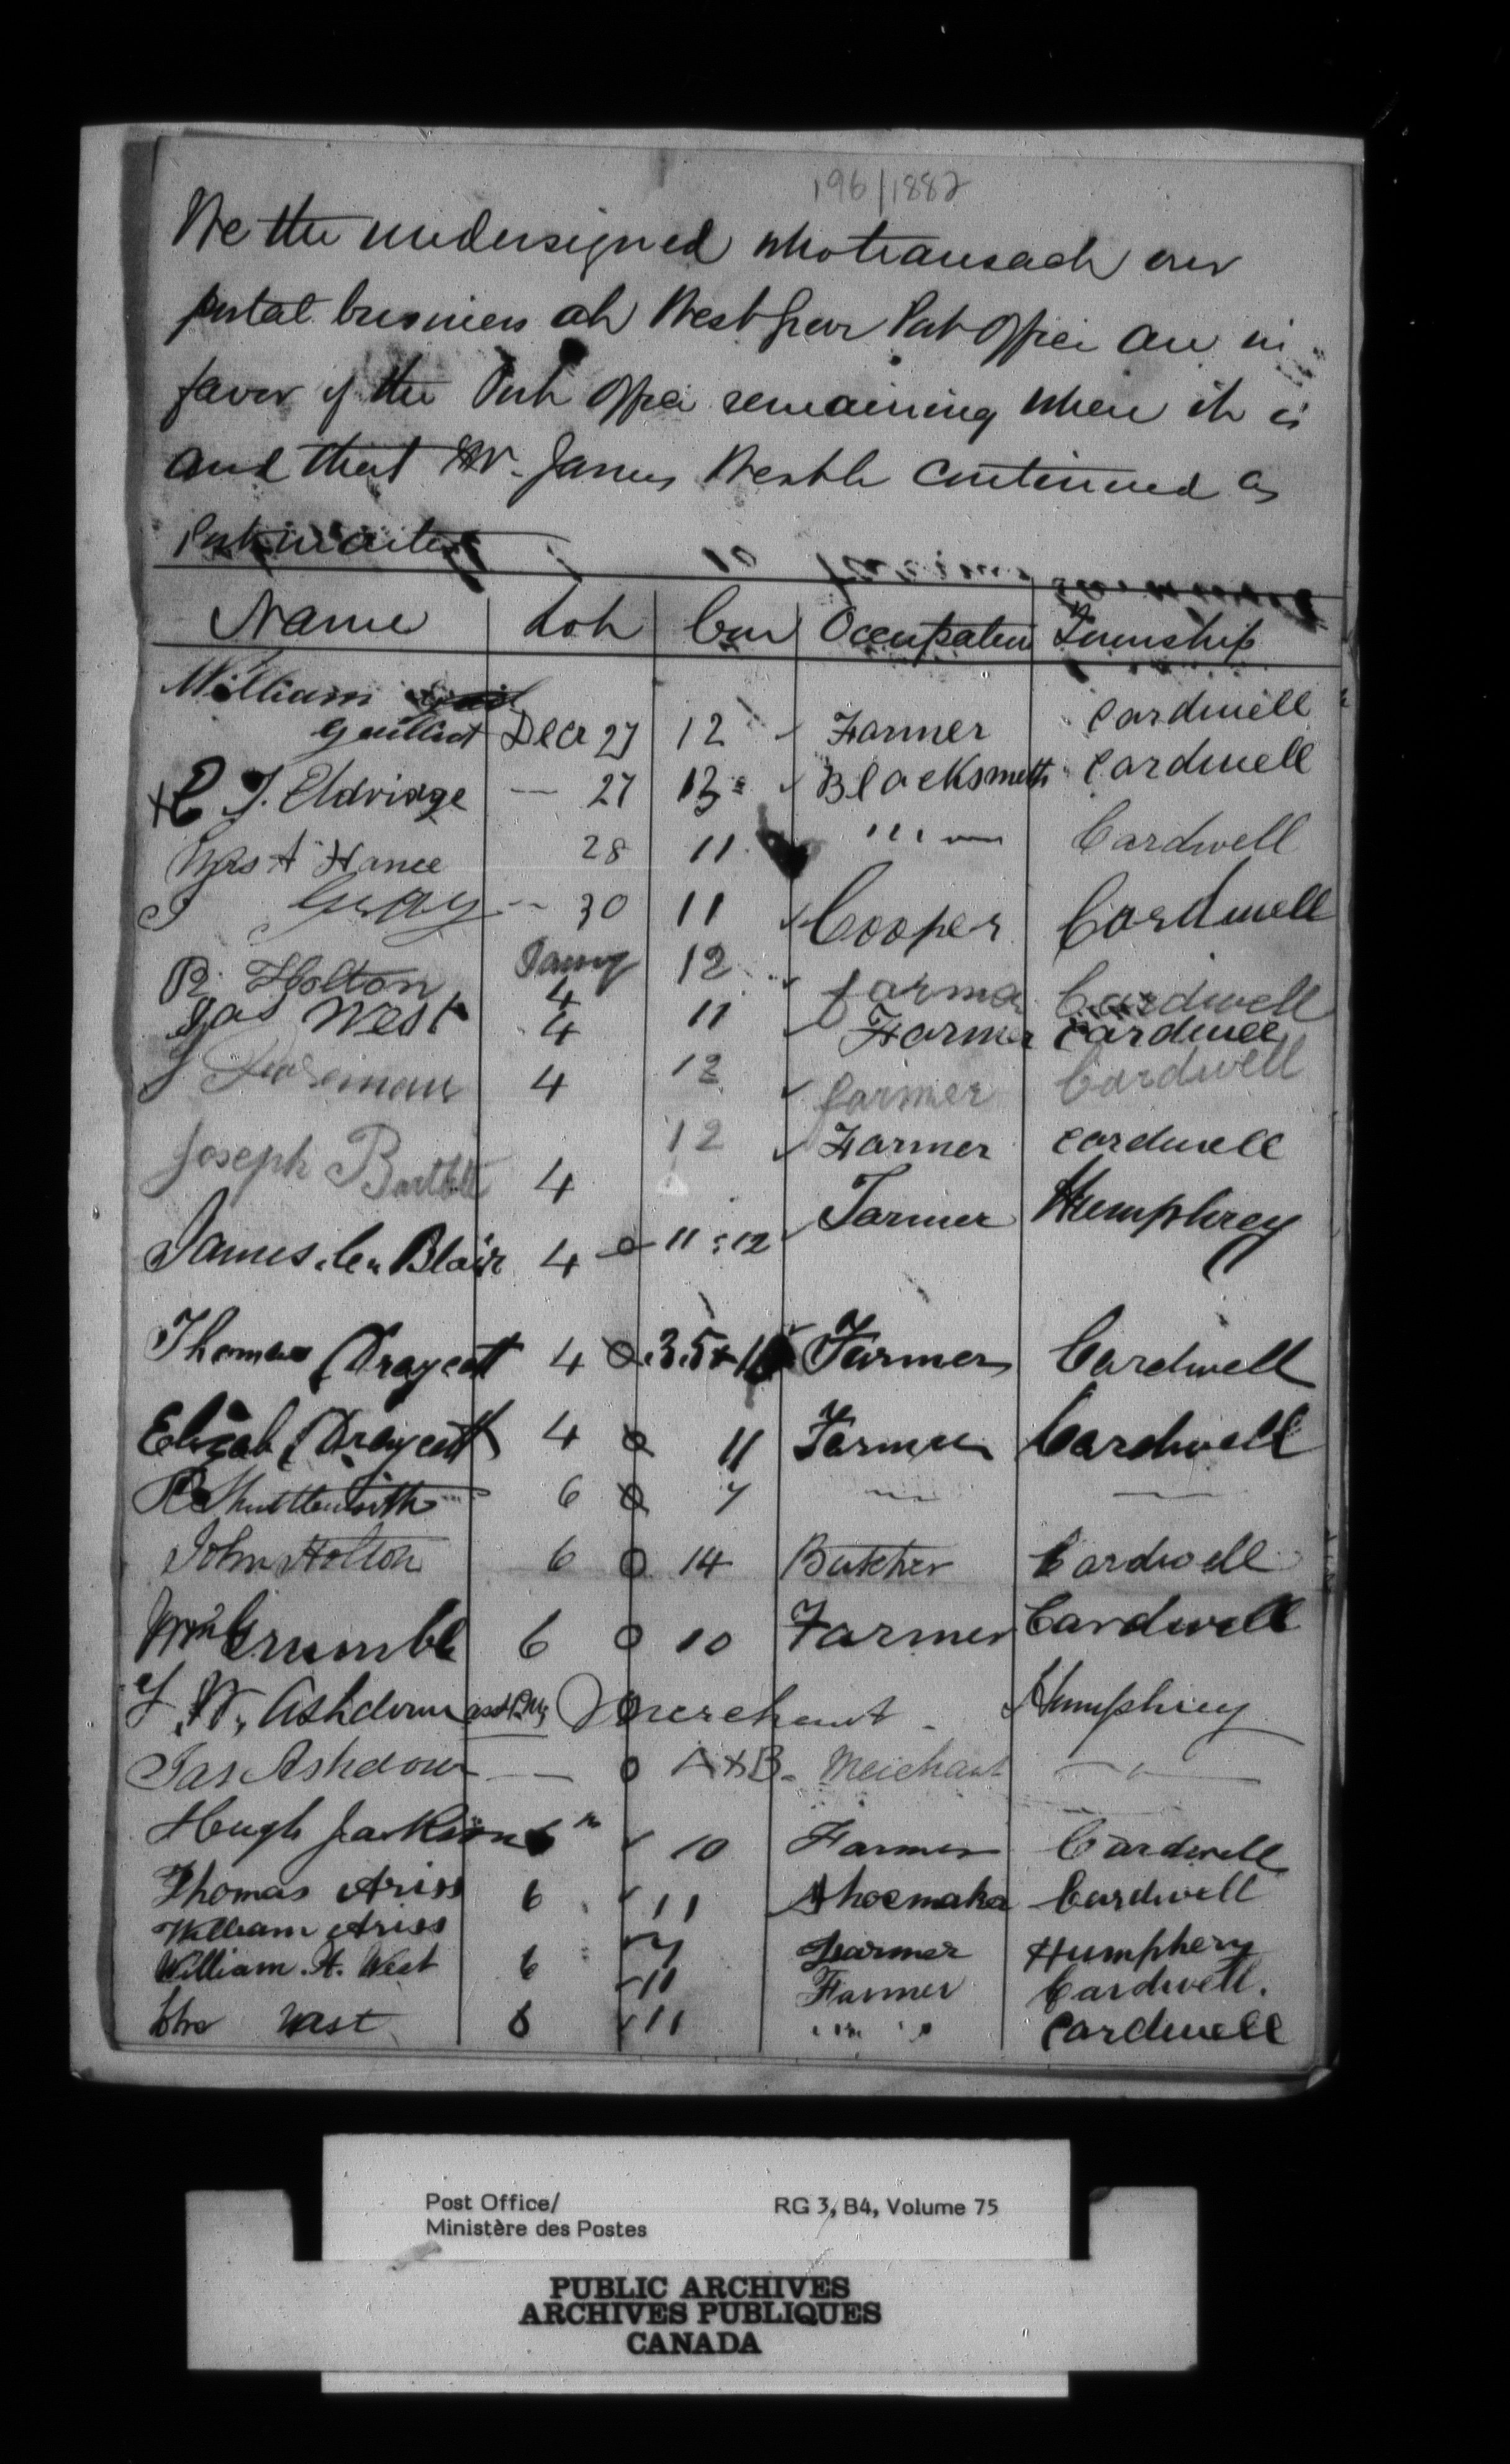 196/1882
We the undersigned who transach our
postal business at West Gear Post Office are in
favor of the Post Office remaining where it is
and that Mr. James West be continued as
Postmaster
Name Lot Con Occupation Township
William
Decr 27 12 Farmer Cardwell
J. Eldridge — 27 13 Blacksmith Cardwell
Mrs A Hance 28 11 " Cardwell
J Gray — 30 11 Cooper Cardwell
R. Holton Jany 4 12 farmer Cardwell
Jas West 4 11 Farmer Cardwell
J Foreman 4 12 farmer Cardwell
Joseph Bartlett 4 12 Farmer Cardwell
James Blair 4 11 & 12 Farmer Humphrey
Thomas Draycott 4 Farmer Cardwell
Elizah Draycott 4 11 Farmer Cardwell
R Shuttleworth 6 7 — —
John Holton 6 14 Butcher Cardwell
Wm Crumbl 6 10 Farmer Cardwell
W. Ashdown asst P.M. Merchant Humphrey
Jas Ashdown — A & B. Merchant — " —
Hugh Jackson 6 10 Farmer Cardwell
Thomas Ariss 6 11 Shoemaker Cardwell
William Ariss 7 Farmer Humphery
William. A. West 6 11 Farmer Cardwell.
West 6 11 " Cardwell
Post Office/
Ministère des Postes
RG 3, B4, Volume 75
PUBLIC ARCHIVES
ARCHIVES PUBLIQUES
CANADA